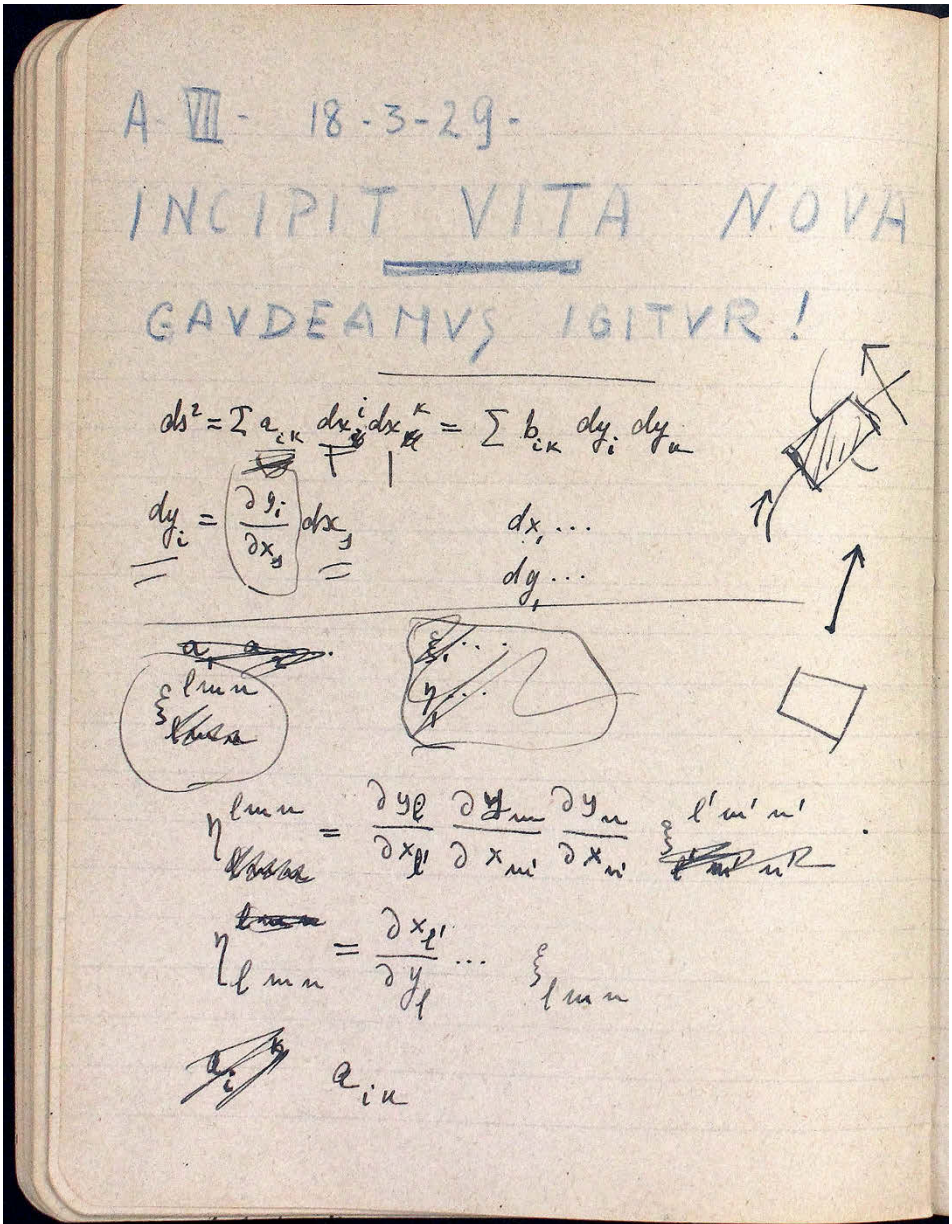 A-VII- 18-3-29-
INCIPIT VITA NOVA
GAVDEAMVS IGITVR!
ds² = Σ a_{ik} dx^i dx^k = Σ b_{ik} dy_i dy_k
dy_i = ∂y_i/∂x_s dx_s
dx_1 ...
dy_1 ...
ξ^{lmn}
ξ_1 ...
η_1 ...
η^{lmn} = ∂y_l/∂x_{l'} ∂y_m/∂x_{m'} ∂y_n/∂x_{n'} ξ^{l'm'n'}
η_{lmn} = ∂x_{l'}/∂y_l ... ξ_{lmn}
a_{ik}